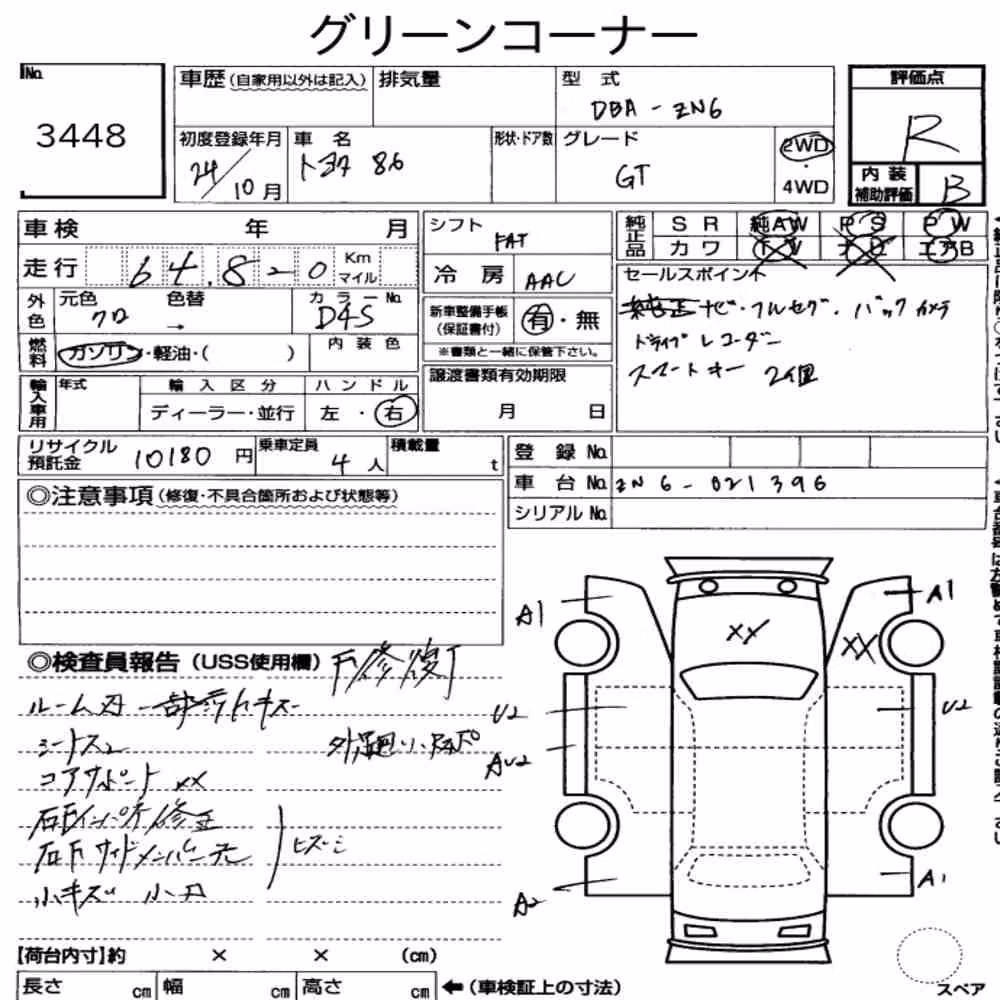 グリーンコーナー
No. 3448
車歴(自家用以外は記入) 排気量 型式 DBA-ZN6
評価点 R
初度登録年月 24/10月 車名 トヨタ 86 形状・ドア数 グレード GT 2WD・4WD
内装補助評価 B
車検 年 月
シフト FAT
純正品 SR 純AW PS PW
カワ TV ナビ エアB
走行 64,820 Km マイル
冷房 AAC
セールスポイント
純正ナビ・フルセグ・バックカメラ
ドライブレコーダー
スマートキー 2個
外色 元色 クロ 色替 → カラーNo. D4S
新車整備手帳(保証書付) 有・無
※書類と一緒に保管下さい。
燃料 ガソリン・軽油・( ) 内装色
譲渡書類有効期限
月 日
輸入車用 年式 輸入区分 ハンドル
ディーラー・並行 左・右
リサイクル預託金 10180円 乗車定員 4人 積載量 t
登録No.
車台No. ZN6-021396
シリアルNo.
◎注意事項(修復・不具合箇所および状態等)
◎検査員報告(USS使用欄)
修復
ルーム 一部 キズ
コアサポート XX
修正
右F サイドメンバー
小キズ
A1
A1
XX
XX
U2
U2
AU2
A2
A1
【荷台内寸】約 × × (cm)
長さ cm 幅 cm 高さ cm ←(車検証上の寸法)
スペア